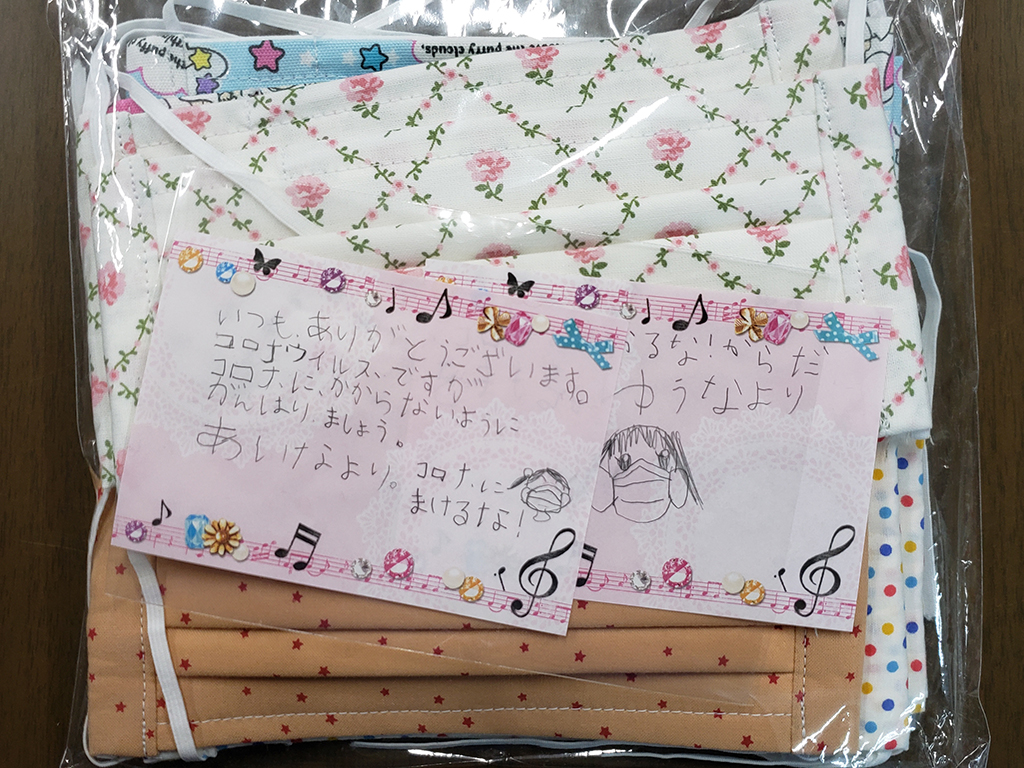 the puffy clouds.
いつも、ありがとうございます。
コロナウイルス、ですが
コロナ、に、かからないように
がんばり、ましょう。
あいけなより。
コロナ、に
まけるな!
るな!からだ
ゆうなより